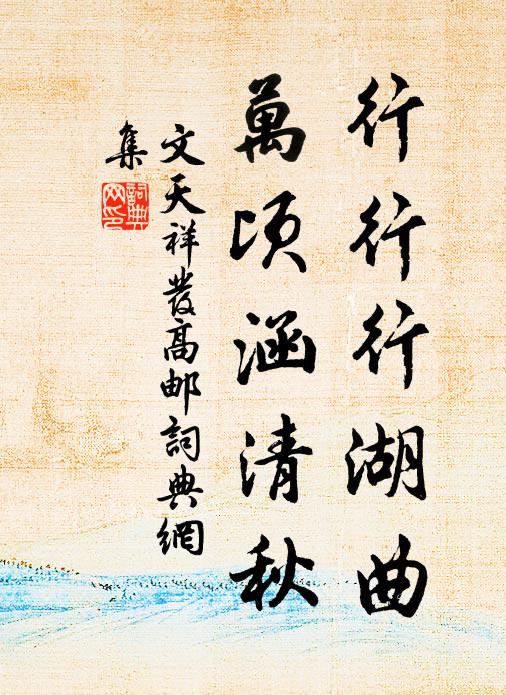 行行行湖曲
萬頃涵清秋
文天祥發高邮詞典網
集
詞典
网印